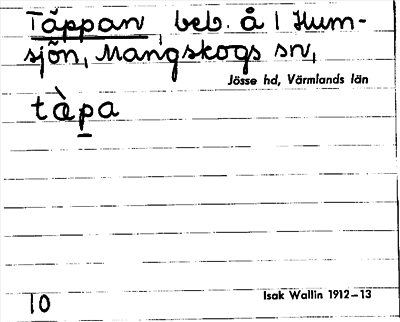 Täppan, beb. å 1 Hum-
sjön, Mangskogs sn,
Jösse hd, Värmlands län
tàpa
10
Isak Wallin 1912–13